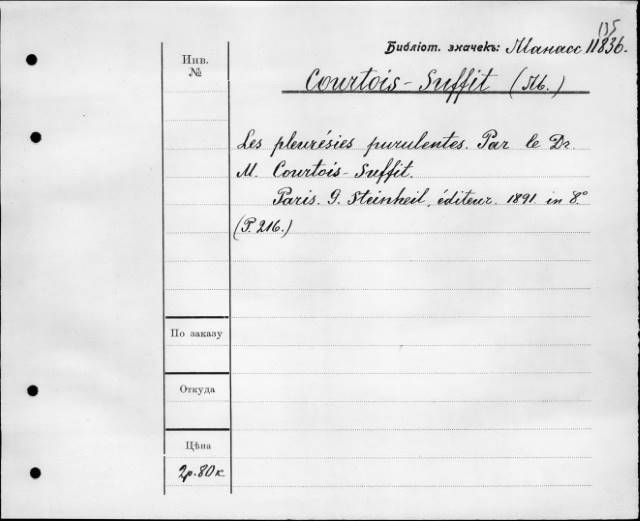 135
Библіот. значекъ: Манасс 11836.
Инв.
№
Courtois-Suffit (M.)
Les pleurésies purulentes. Par le Dr.
M. Courtois-Suffit.
Paris. G. Steinheil, éditeur. 1891. in 8°
(P. 216.)
По заказу
Откуда
Цѣна
2р. 80к